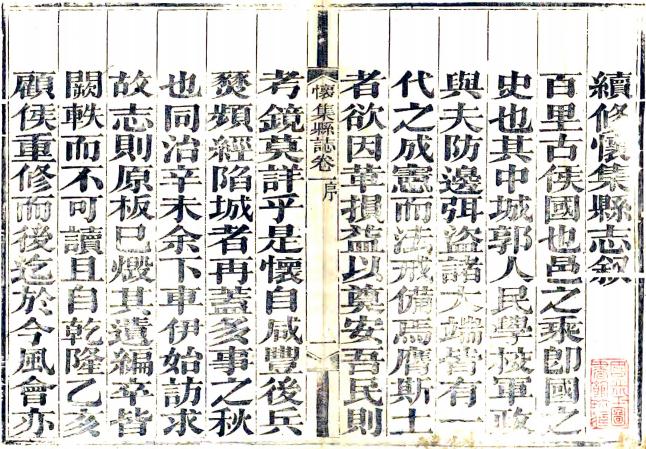 續修懷集縣志敘
百里古侯國也邑之乘卽國之
史也其中城郭人民學校軍政
與夫防邊弭盜諸大端皆有一
代之成憲而法戒備焉膺斯土
者欲因革損益以奠安吾民則
懷集縣誌卷 序
考鏡莫詳乎是懷自咸豐後兵
燹頻經陷城者再蓋多事之秋
也同治辛未余下車伊始訪求
故志則原板已燬其遺編卒皆
闕軼而不可讀且自乾隆乙亥
顧侯重修而後迄於今風會亦